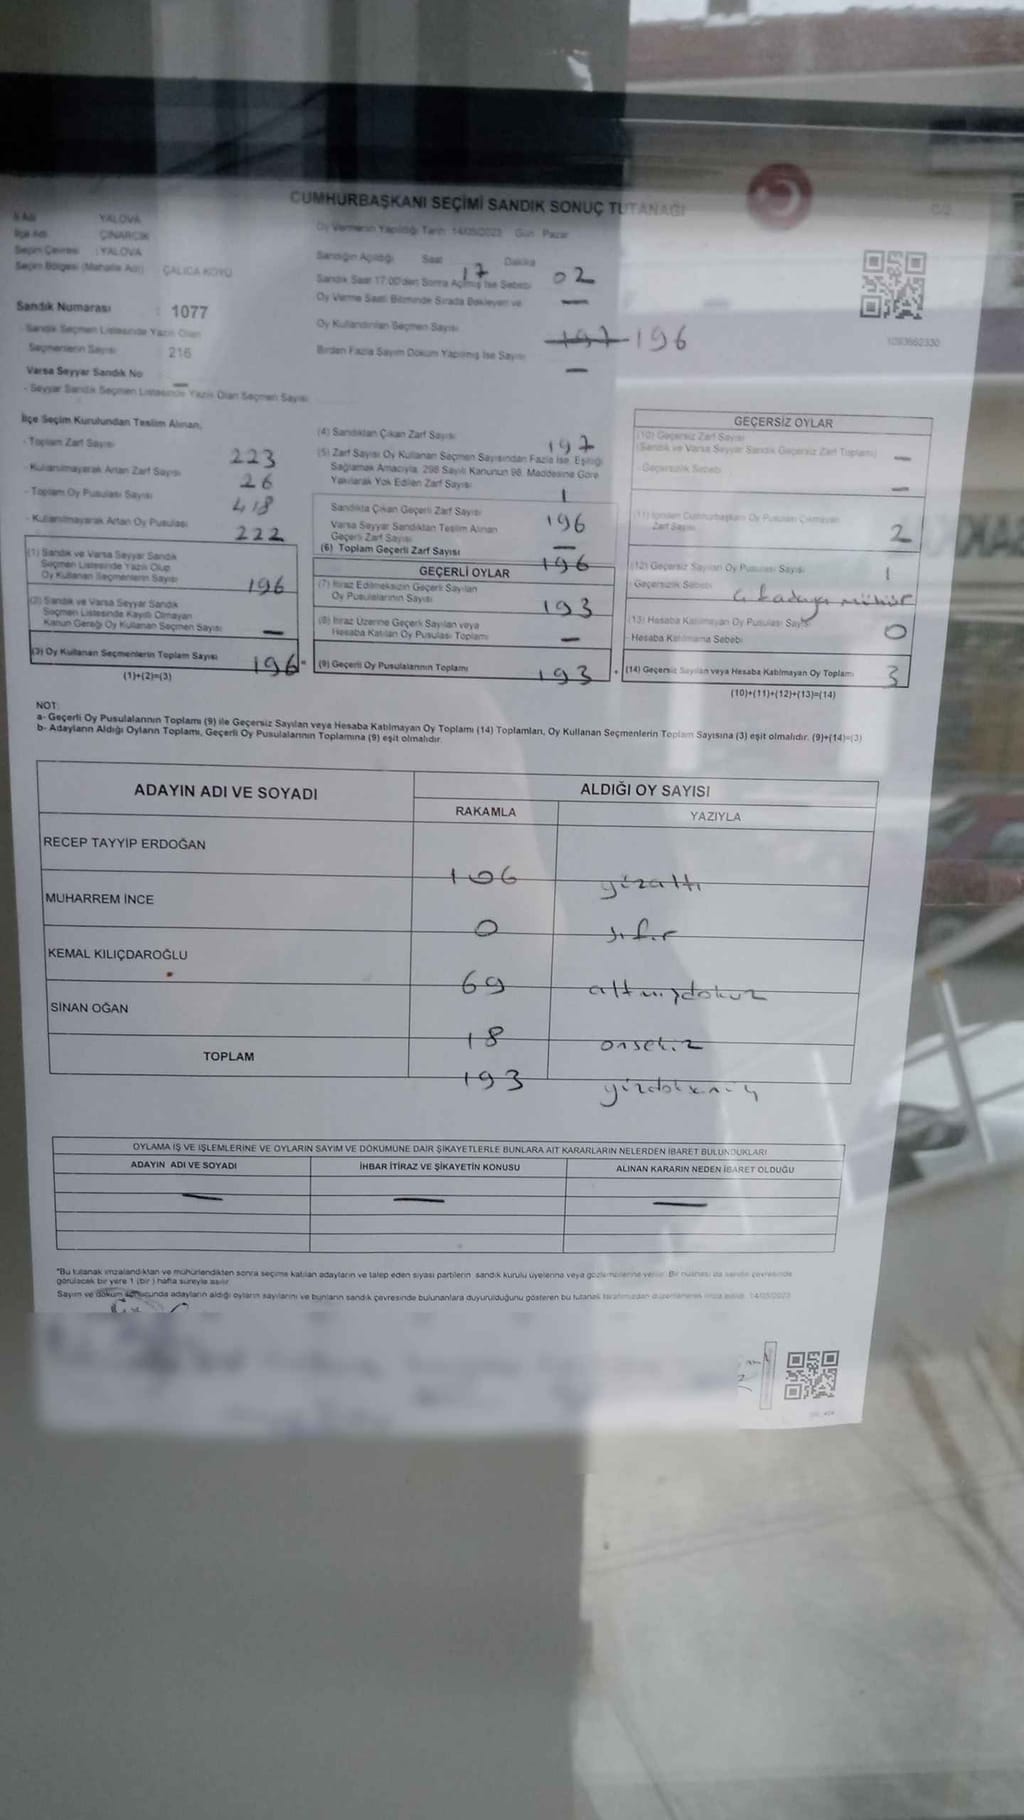 CUMHURBAŞKANI SEÇİMİ SANDIK SONUÇ TUTANAĞI
İl Adı YALOVA
İlçe Adı ÇINARCIK
Seçim Çevresi : YALOVA
Seçim Bölgesi (Mahalle Adı) ÇALICA KÖYÜ
Sandık Numarası : 1077
Sandık Seçmen Listesinde Yazılı Olan
Seçmenlerin Sayısı 216
Varsa Seyyar Sandık No —
- Seyyar Sandık Seçmen Listesinde Yazılı Olan Seçmen Sayısı
Oy Vermenin Yapıldığı Tarih 14/05/2023 Gün Pazar
Sandığın Açıldığı Saat 17 Dakika 02
Sandık Saat 17:00'den Sonra Açılmış İse Sebebi —
Oy Verme Saati Bitiminde Sırada Bekleyen ve
Oy Kullandırılan Seçmen Sayısı 197 196
Birden Fazla Sayım Döküm Yapılmış İse Sayısı —
1093660330
İlçe Seçim Kurulundan Teslim Alınan,
- Toplam Zarf Sayısı 223
- Kullanılmayarak Artan Zarf Sayısı 26
- Toplam Oy Pusulası Sayısı 418
- Kullanılmayarak Artan Oy Pusulası 222
(1) Sandık ve Varsa Seyyar Sandık
Seçmen Listesinde Yazılı Olup
Oy Kullanan Seçmenlerin Sayısı 196
(2) Sandık ve Varsa Seyyar Sandık
Seçmen Listesinde Kayıtlı Olmayan
Kanun Gereği Oy Kullanan Seçmen Sayısı —
(3) Oy Kullanan Seçmenlerin Toplam Sayısı 196
(1)+(2)=(3)
(4) Sandıktan Çıkan Zarf Sayısı 197
(5) Zarf Sayısı Oy Kullanan Seçmen Sayısından Fazla İse, Eşitliği
Sağlamak Amacıyla, 298 Sayılı Kanunun 98. Maddesine Göre
Yakılarak Yok Edilen Zarf Sayısı 1
Sandıkta Çıkan Geçerli Zarf Sayısı 196
Varsa Seyyar Sandıktan Teslim Alınan
Geçerli Zarf Sayısı —
(6) Toplam Geçerli Zarf Sayısı 196
GEÇERLİ OYLAR
(7) İtiraz Edilmeksizin Geçerli Sayılan
Oy Pusulalarının Sayısı 193
(8) İtiraz Üzerine Geçerli Sayılan veya
Hesaba Katılan Oy Pusulası Toplamı —
(9) Geçerli Oy Pusulalarının Toplamı 193
GEÇERSİZ OYLAR
(10) Geçersiz Zarf Sayısı
(Sandık ve Varsa Seyyar Sandık Geçersiz Zarf Toplamı) —
- Geçersizlik Sebebi —
(11) İçinden Cumhurbaşkanı Oy Pusulası Çıkmayan
Zarf Sayısı 2
(12) Geçersiz Sayılan Oy Pusulası Sayısı 1
- Geçersizlik Sebebi mühür
(13) Hesaba Katılmayan Oy Pusulası Sayısı 0
- Hesaba Katılmama Sebebi
(14) Geçersiz Sayılan veya Hesaba Katılmayan Oy Toplamı 3
(10)+(11)+(12)+(13)=(14)
NOT:
a- Geçerli Oy Pusulalarının Toplamı (9) ile Geçersiz Sayılan veya Hesaba Katılmayan Oy Toplamı (14) Toplamları, Oy Kullanan Seçmenlerin Toplam Sayısına (3) eşit olmalıdır. (9)+(14)=(3)
b- Adayların Aldığı Oyların Toplamı, Geçerli Oy Pusulalarının Toplamına (9) eşit olmalıdır.
ADAYIN ADI VE SOYADI ALDIĞI OY SAYISI
RAKAMLA YAZIYLA
RECEP TAYYİP ERDOĞAN 106 yüzaltı
MUHARREM İNCE 0 sıfır
KEMAL KILIÇDAROĞLU 69 altmışdokuz
SİNAN OĞAN 18 onsekiz
TOPLAM 193 yüzdoksanüç
OYLAMA İŞ VE İŞLEMLERİNE VE OYLARIN SAYIM VE DÖKÜMÜNE DAİR ŞİKAYETLERLE BUNLARA AİT KARARLARIN NELERDEN İBARET BULUNDUKLARI
ADAYIN ADI VE SOYADI İHBAR İTİRAZ VE ŞİKAYETİN KONUSU ALINAN KARARIN NEDEN İBARET OLDUĞU
— — —
*Bu tutanak imzalandıktan ve mühürlendikten sonra seçime katılan adayların ve talep eden siyasi partilerin sandık kurulu üyelerine veya gözlemcilerine verilir. Bir nüshası da sandık çevresinde
görülecek bir yere 1 (bir) hafta süreyle asılır.
Sayım ve döküm sonucunda adayların aldığı oyların sayılarını ve bunların sandık çevresinde bulunanlara duyurulduğunu gösteren bu tutanak tarafımızdan düzenlenerek imza edildi. 14/05/2023